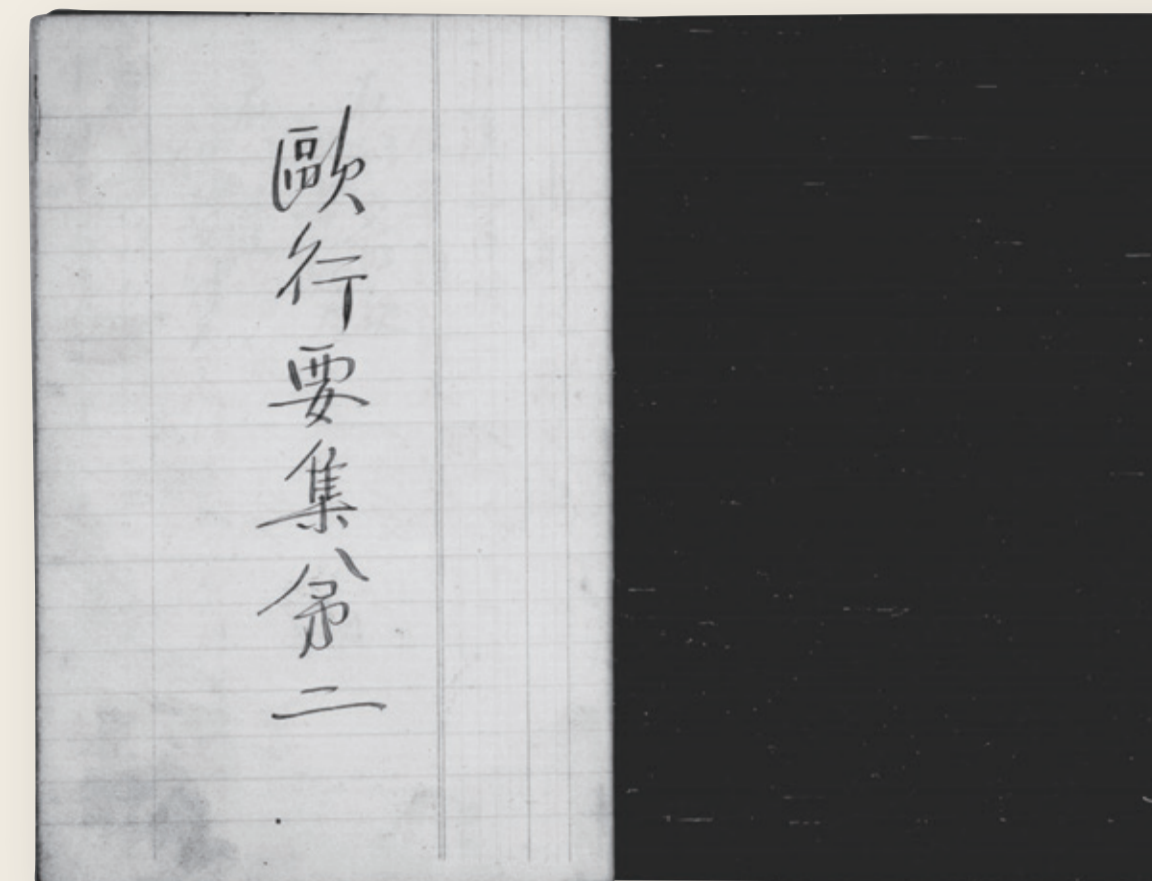 歐行要集第二